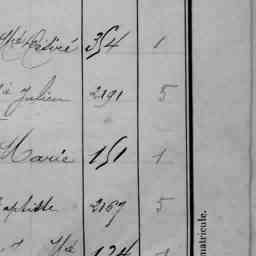 Désiré 354 1
Julien 2191 5
Marie 151 1
Baptiste 2167 5
124
matricule.